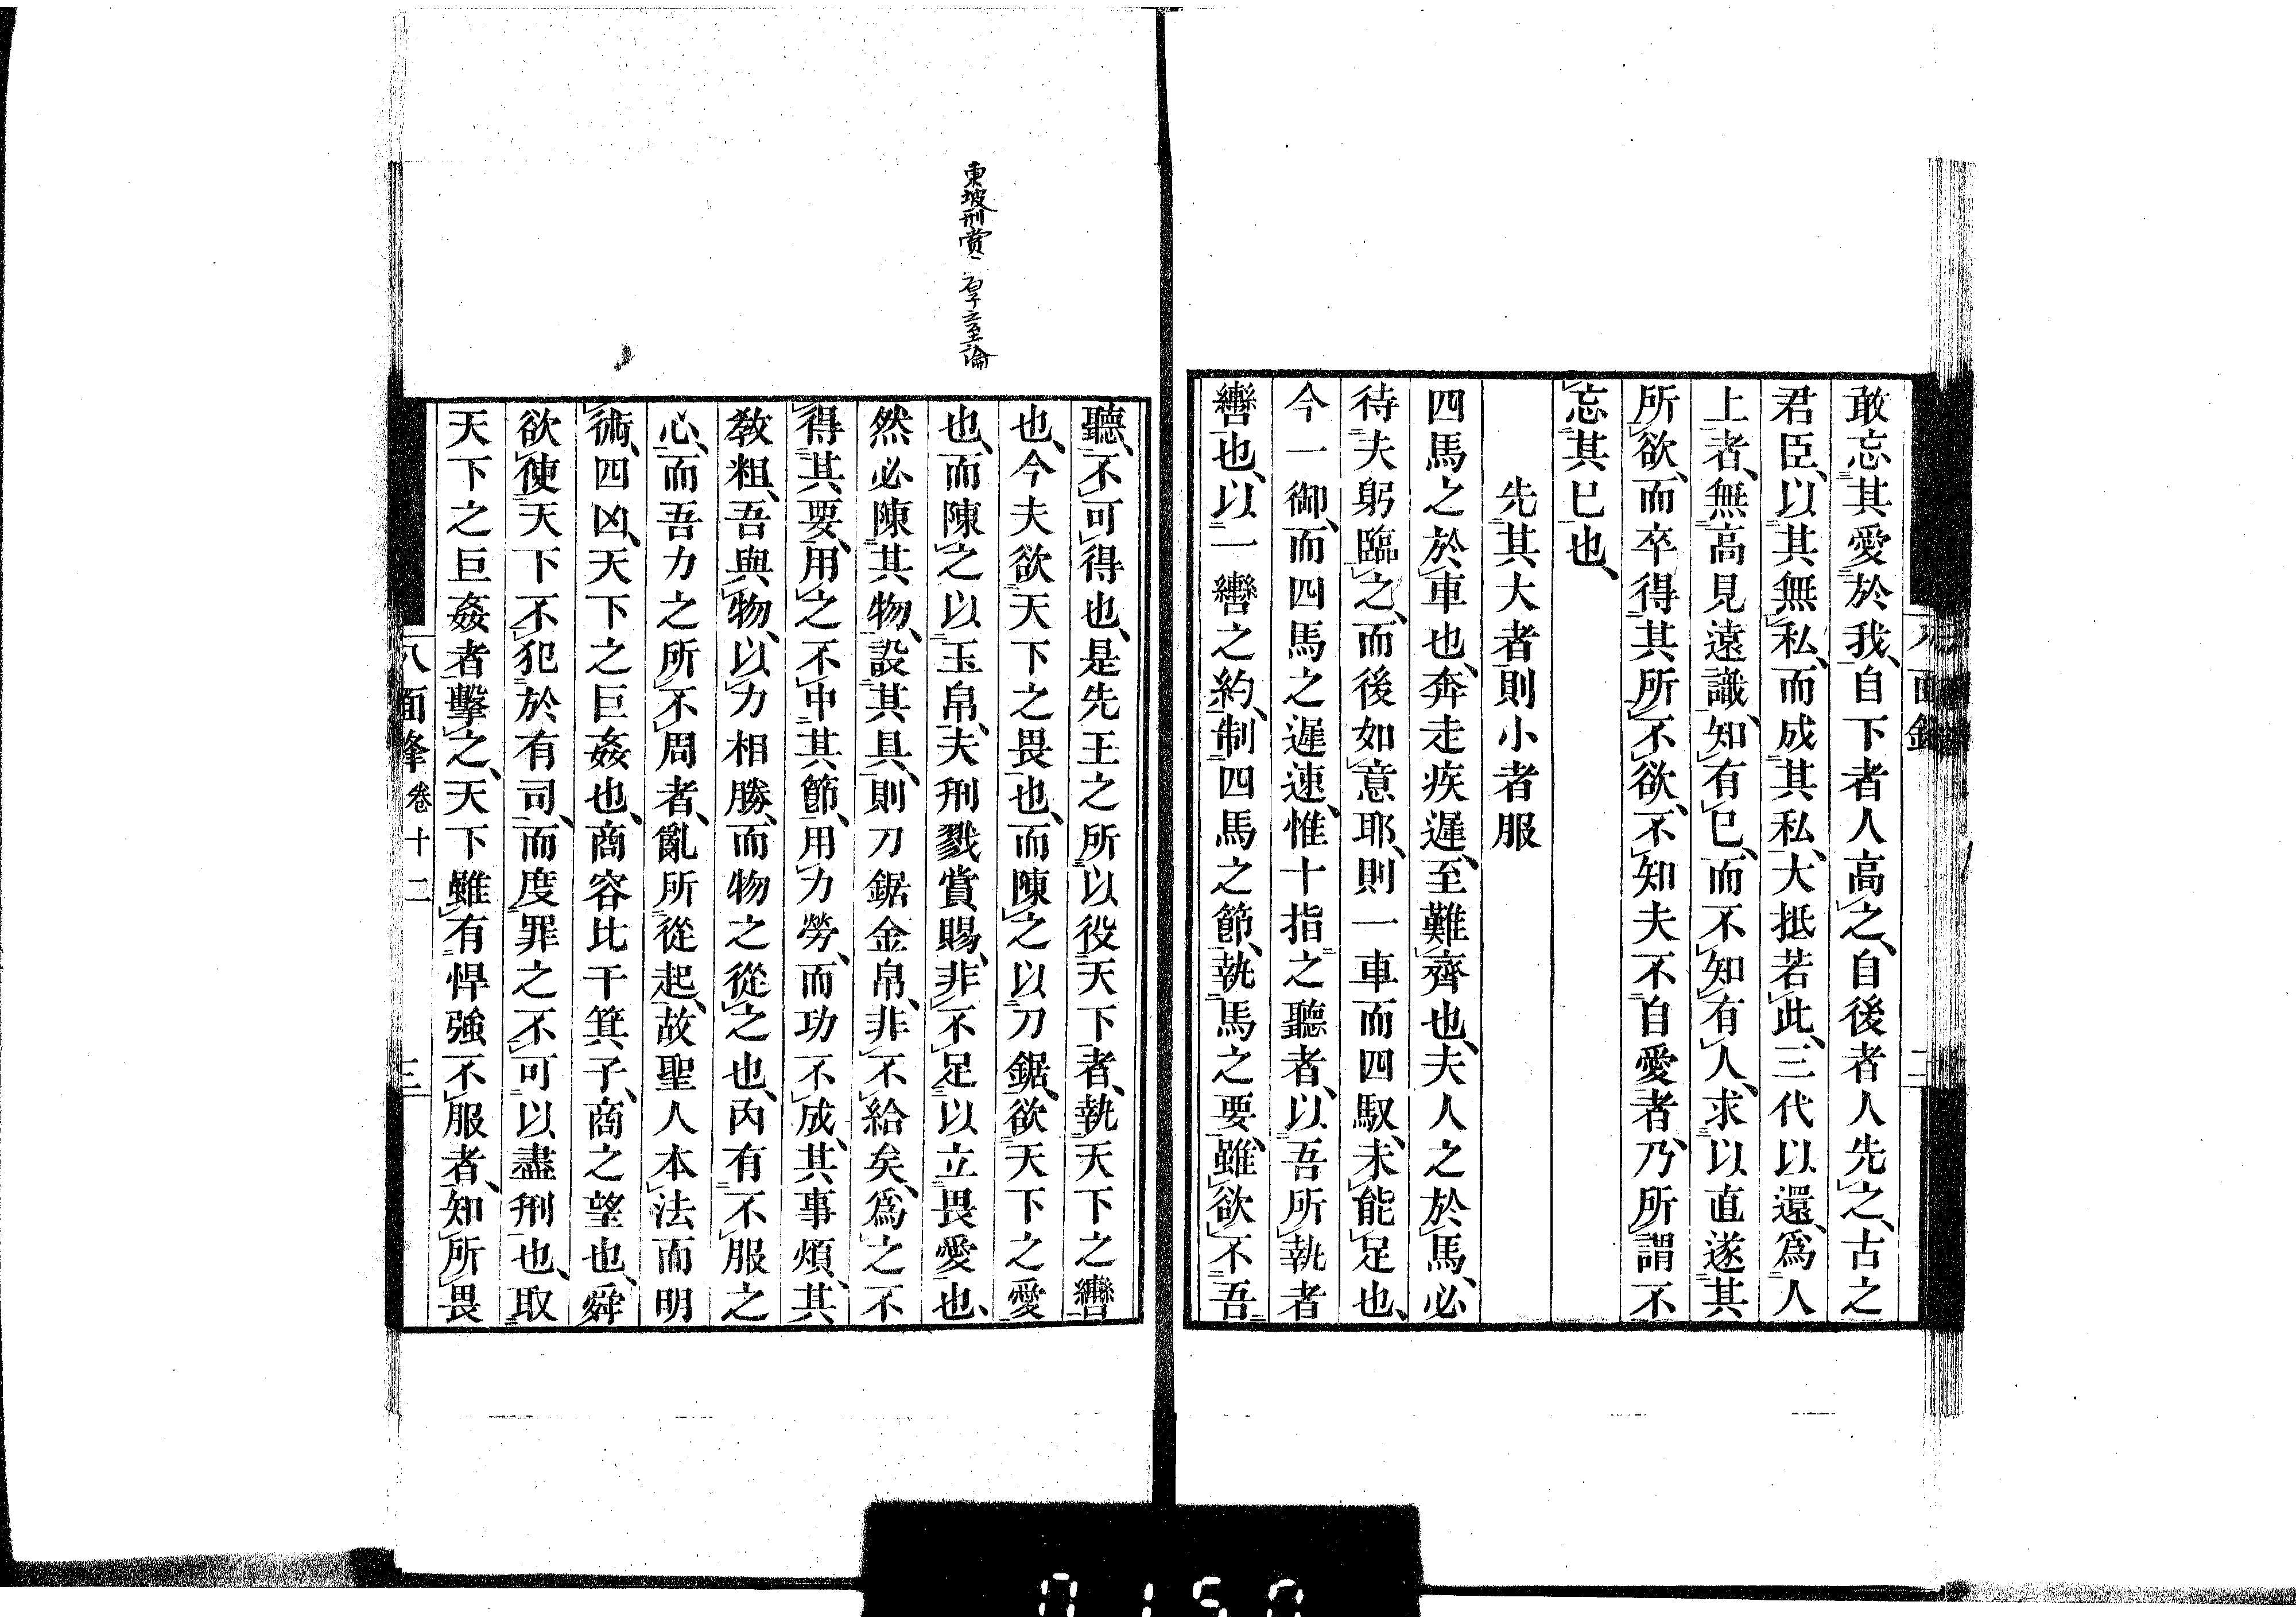 敢忘其愛於我、自下者人高之、自後者人先之、古之
君臣、以其無私、而成其私、大抵若此、三代以還、爲人
上者、無高見遠識、知有已、而不知有人、求以直遂其
所欲、而卒得其所不欲、不知夫不自愛者、乃所謂不
忘其已也、
先其大者則小者服
四馬之於車也、奔走疾遲、至難齊也、夫人之於馬、必
待夫躬臨之、而後如意耶、則一車而四馭、未能足也、
今一御、而四馬之遲速、惟十指之聽者、以吾所執者
轡也、以一轡之約、制四馬之節、執馬之要、雖欲不吾
聽、不可得也、是先王之所以役天下者、執天下之轡
也、今夫欲天下之畏也、而陳之以刀鋸、欲天下之愛
也、而陳之以玉帛、夫刑戮賞賜、非不足以立畏愛也、
然必陳其物、設其具、則刀鋸金帛、非不給矣、爲之不
得其要、用之不中其節、用力勞、而功不成、其事煩、其
敎粗、吾與物、以力相勝、而物之從之也、內有不服之
心、而吾力之所不周者、亂所從起、故聖人本法而明
術、四凶、天下之巨姦也、商容比干箕子、商之望也、舜
欲使天下不犯於有司、而度罪之不可以盡刑也、取
天下之巨姦者擊之、天下雖有悍強不服者、知所畏
八面鋒 卷十二 三
東坡刑賞忠厚之至論